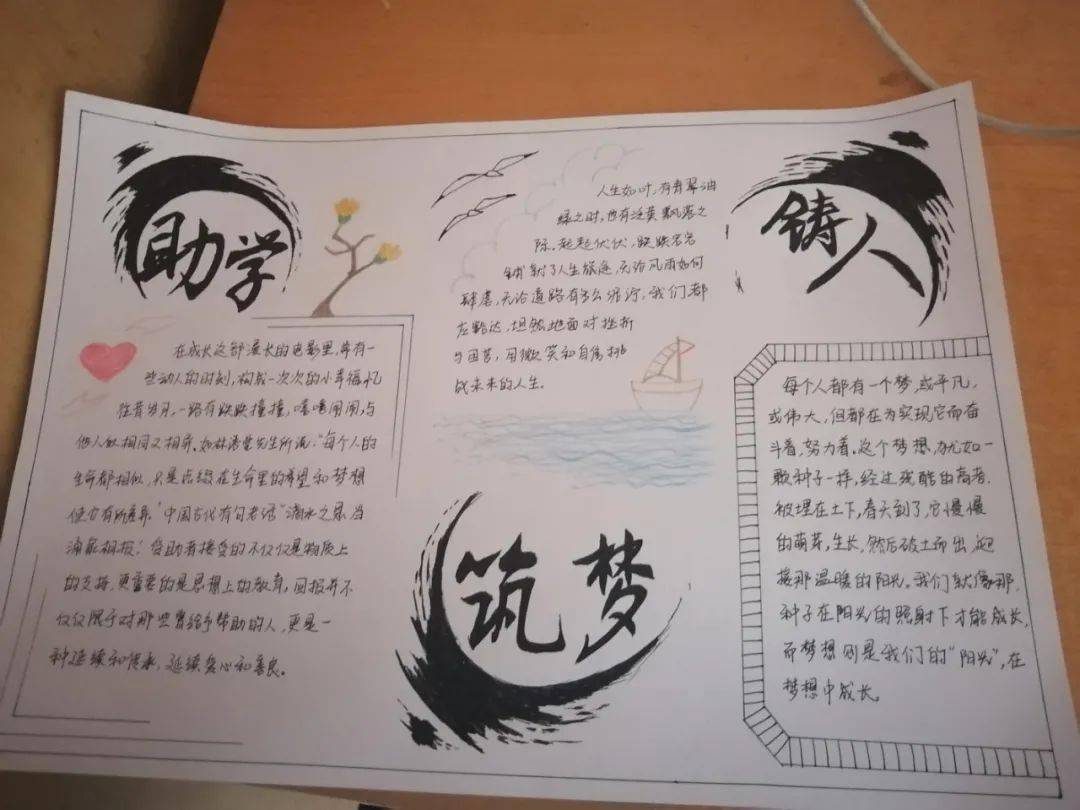 助学
在成长这部漫长的电影里,常有一
些动人的时刻,构成一次次的小幸福,札
往昔岁月,一路有跌跌撞撞,嘻嘻闹闹,与
他人似相同又相异.如林语堂先生所说:"每个人的
生命都相似,只是点缀在生命里的希望和梦想
使它有所差异."中国古代有句老话"滴水之恩,当
涌泉相报!受助者接受的不仅仅是物质上
的支持,更重要的是思想上的教育,回报并不
仅仅限于对那些曾给予帮助的人,更是一
种延续和传承,延续爱心和善良。
人生如叶,有青翠油
绿之时,也有泛黄飘落之
际.起起伏伏,跌跌宕宕
铺就了人生旅途,无论风雨如何
肆虐,无论道路有多么泥泞,我们都
应豁达,坦然地面对挫折
与困苦,用微笑和自信挑
战未来的人生.
筑梦
铸人
每个人都有一个梦,或平凡,
或伟大,但都在为实现它而奋
斗着,努力着.这个梦想,就如一
颗种子一样,经过残酷的
被埋在土下,春天到了,它慢慢
的萌芽,生长,然后破土而出,迎
接那温暖的阳光.我们就像那
种子在阳光的照射下才能成长,
而梦想则是我们的"阳光",在
梦想中成长。